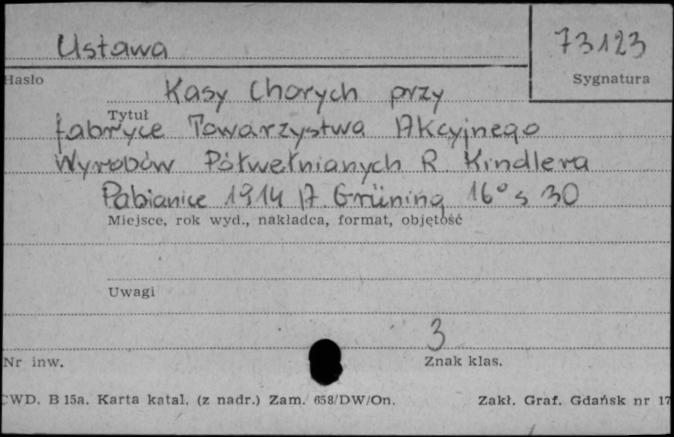 Ustawa
73123
Hasło
Sygnatura
Kasy Chorych przy
Tytuł
fabryce Towarzystwa Akcyjnego
Wyrobów Półwełnianych R. Kindlera
Pabianice 1914 A. Grüning 16° s 30
Miejsce, rok wyd., nakładca, format, objętość
Uwagi
3
Nr inw.
Znak klas.
CWD. B 15a. Karta katal. (z nadr.) Zam. 658/DW/On.
Zakł. Graf. Gdańsk nr 17